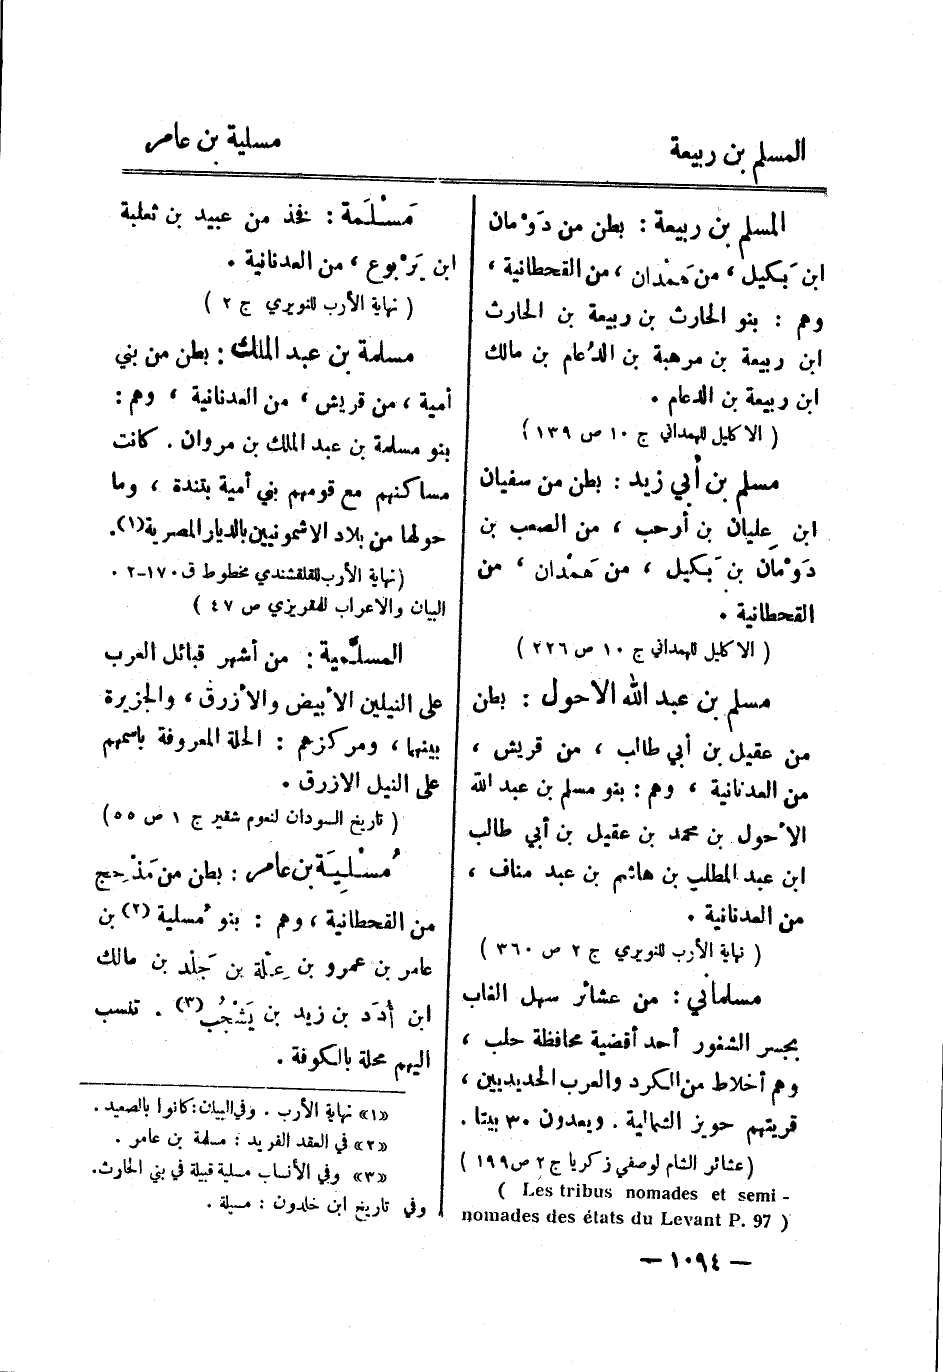 المسلم بن ربيعة
مسلية بن عامر
المسلم بن ربيعة : بطن من دَوْمان
ابن بَكيل ، من هَمْدان ، من القحطانية ،
وهم : بنو الحارث بن ربيعة بن الحارث
ابن ربيعة بن مرهبة بن الدُعام بن مالك
ابن ربيعة بن الدعام .
( الاكليل للهمداني ج ١٠ ص ١٣٩ )
مسلم بن أبي زيد : بطن من سفيان
ابن عِليان بن أرحب ، من الصعب بن
دَوْمان بن بَكيل ، من هَمْدان ، من
القحطانية .
( الاكليل للهمداني ج ١٠ ص ٢٢٦ )
مسلم بن عبد الله الاحول : بطن
من عقيل بن أبي طالب ، من قريش ،
من العدنانية ، وهم : بنو مسلم بن عبد الله
الأحول بن محمد بن عقيل بن أبي طالب
ابن عبد المطلب بن هاشم بن عبد مناف ،
من العدنانية .
( نهاية الأرب للنويري ج ٢ ص ٣٦٠ )
مسلماني : من عشائر سهل الغاب
بجسر الشغور أحد أقضية محافظة حلب ،
وهم أخلاط من الكرد والعرب الحديديين ،
قريتهم حويز الشمالية . ويعدون ٣٠ بيتا .
( عشائر الشام لوصفي زكريا ج ٢ ص ١٩٩ )
( Les tribus nomades et semi -
nomades des états du Levant P. 97 )
مَسْلَمة : فخذ من عبيد بن ثعلبة
ابن يَرْبوع ، من العدنانية .
( نهاية الأرب للنويري ج ٢ )
مسلمة بن عبد الملك : بطن من بني
أمية ، من قريش ، من العدنانية ، وهم :
بنو مسلمة بن عبد الملك بن مروان . كانت
مساكنهم مع قومهم بني أمية بتندة ، وما
حولها من بلاد الاشمونيين بالديار المصرية (١).
(نهاية الأرب للقلقشندي مخطوط ق ١٧٠-٢ .
البيان والاعراب للمقريزي ص ٤٧ )
المسلَّمية : من أشهر قبائل العرب
على النيلين الأبيض والأزرق ، والجزيرة
بينها ، ومركزهم : الحلة المعروفة باسمهم
على النيل الازرق .
( تاريخ السودان لنعوم شقير ج ١ ص ٥٥ )
مُسْلِيَة بن عامر : بطن من مَذْحِج
من القحطانية ، وهم : بنو مُسلية (٢) بن
عامر بن عمرو بن عِلة بن جَلْد بن مالك
ابن أُدَد بن زيد بن يَشْجُب (٣) . تنسب
اليهم محلة بالكوفة .
«١» نهاية الأرب . وفي البيان : كانوا بالصعيد .
«٢» في العقد الفريد : مسلمة بن عامر .
«٣» وفي الأنساب مسلية قبيلة في بني الحارث.
وفي تاريخ ابن خلدون : مسيلة .
— ١٠٩٤ —